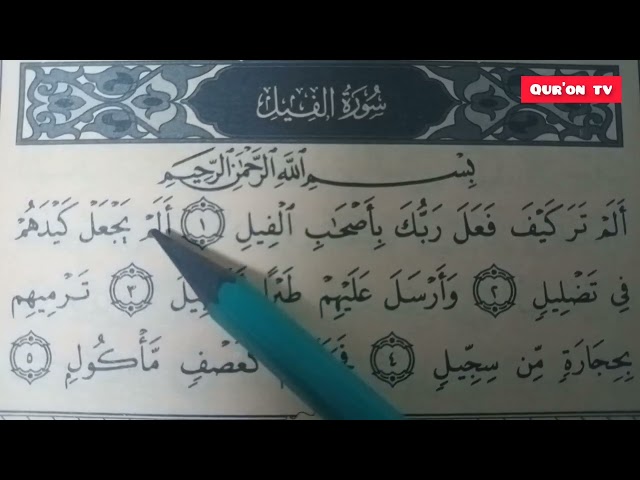 QUR'ON TV
سُورَةُ الفِيلِ
بِسْمِ اللَّهِ الرَّحْمَٰنِ الرَّحِيمِ
أَلَمْ تَرَ كَيْفَ فَعَلَ رَبُّكَ بِأَصْحَٰبِ ٱلْفِيلِ ١ أَلَمْ يَجْعَلْ كَيْدَهُمْ
فِي تَضْلِيلٍ ٢ وَأَرْسَلَ عَلَيْهِمْ طَيْرًا ٣ تَرْمِيهِم
بِحِجَارَةٍ مِّن سِجِّيلٍ ٤ كَعَصْفٍ مَّأْكُولٍ ٥